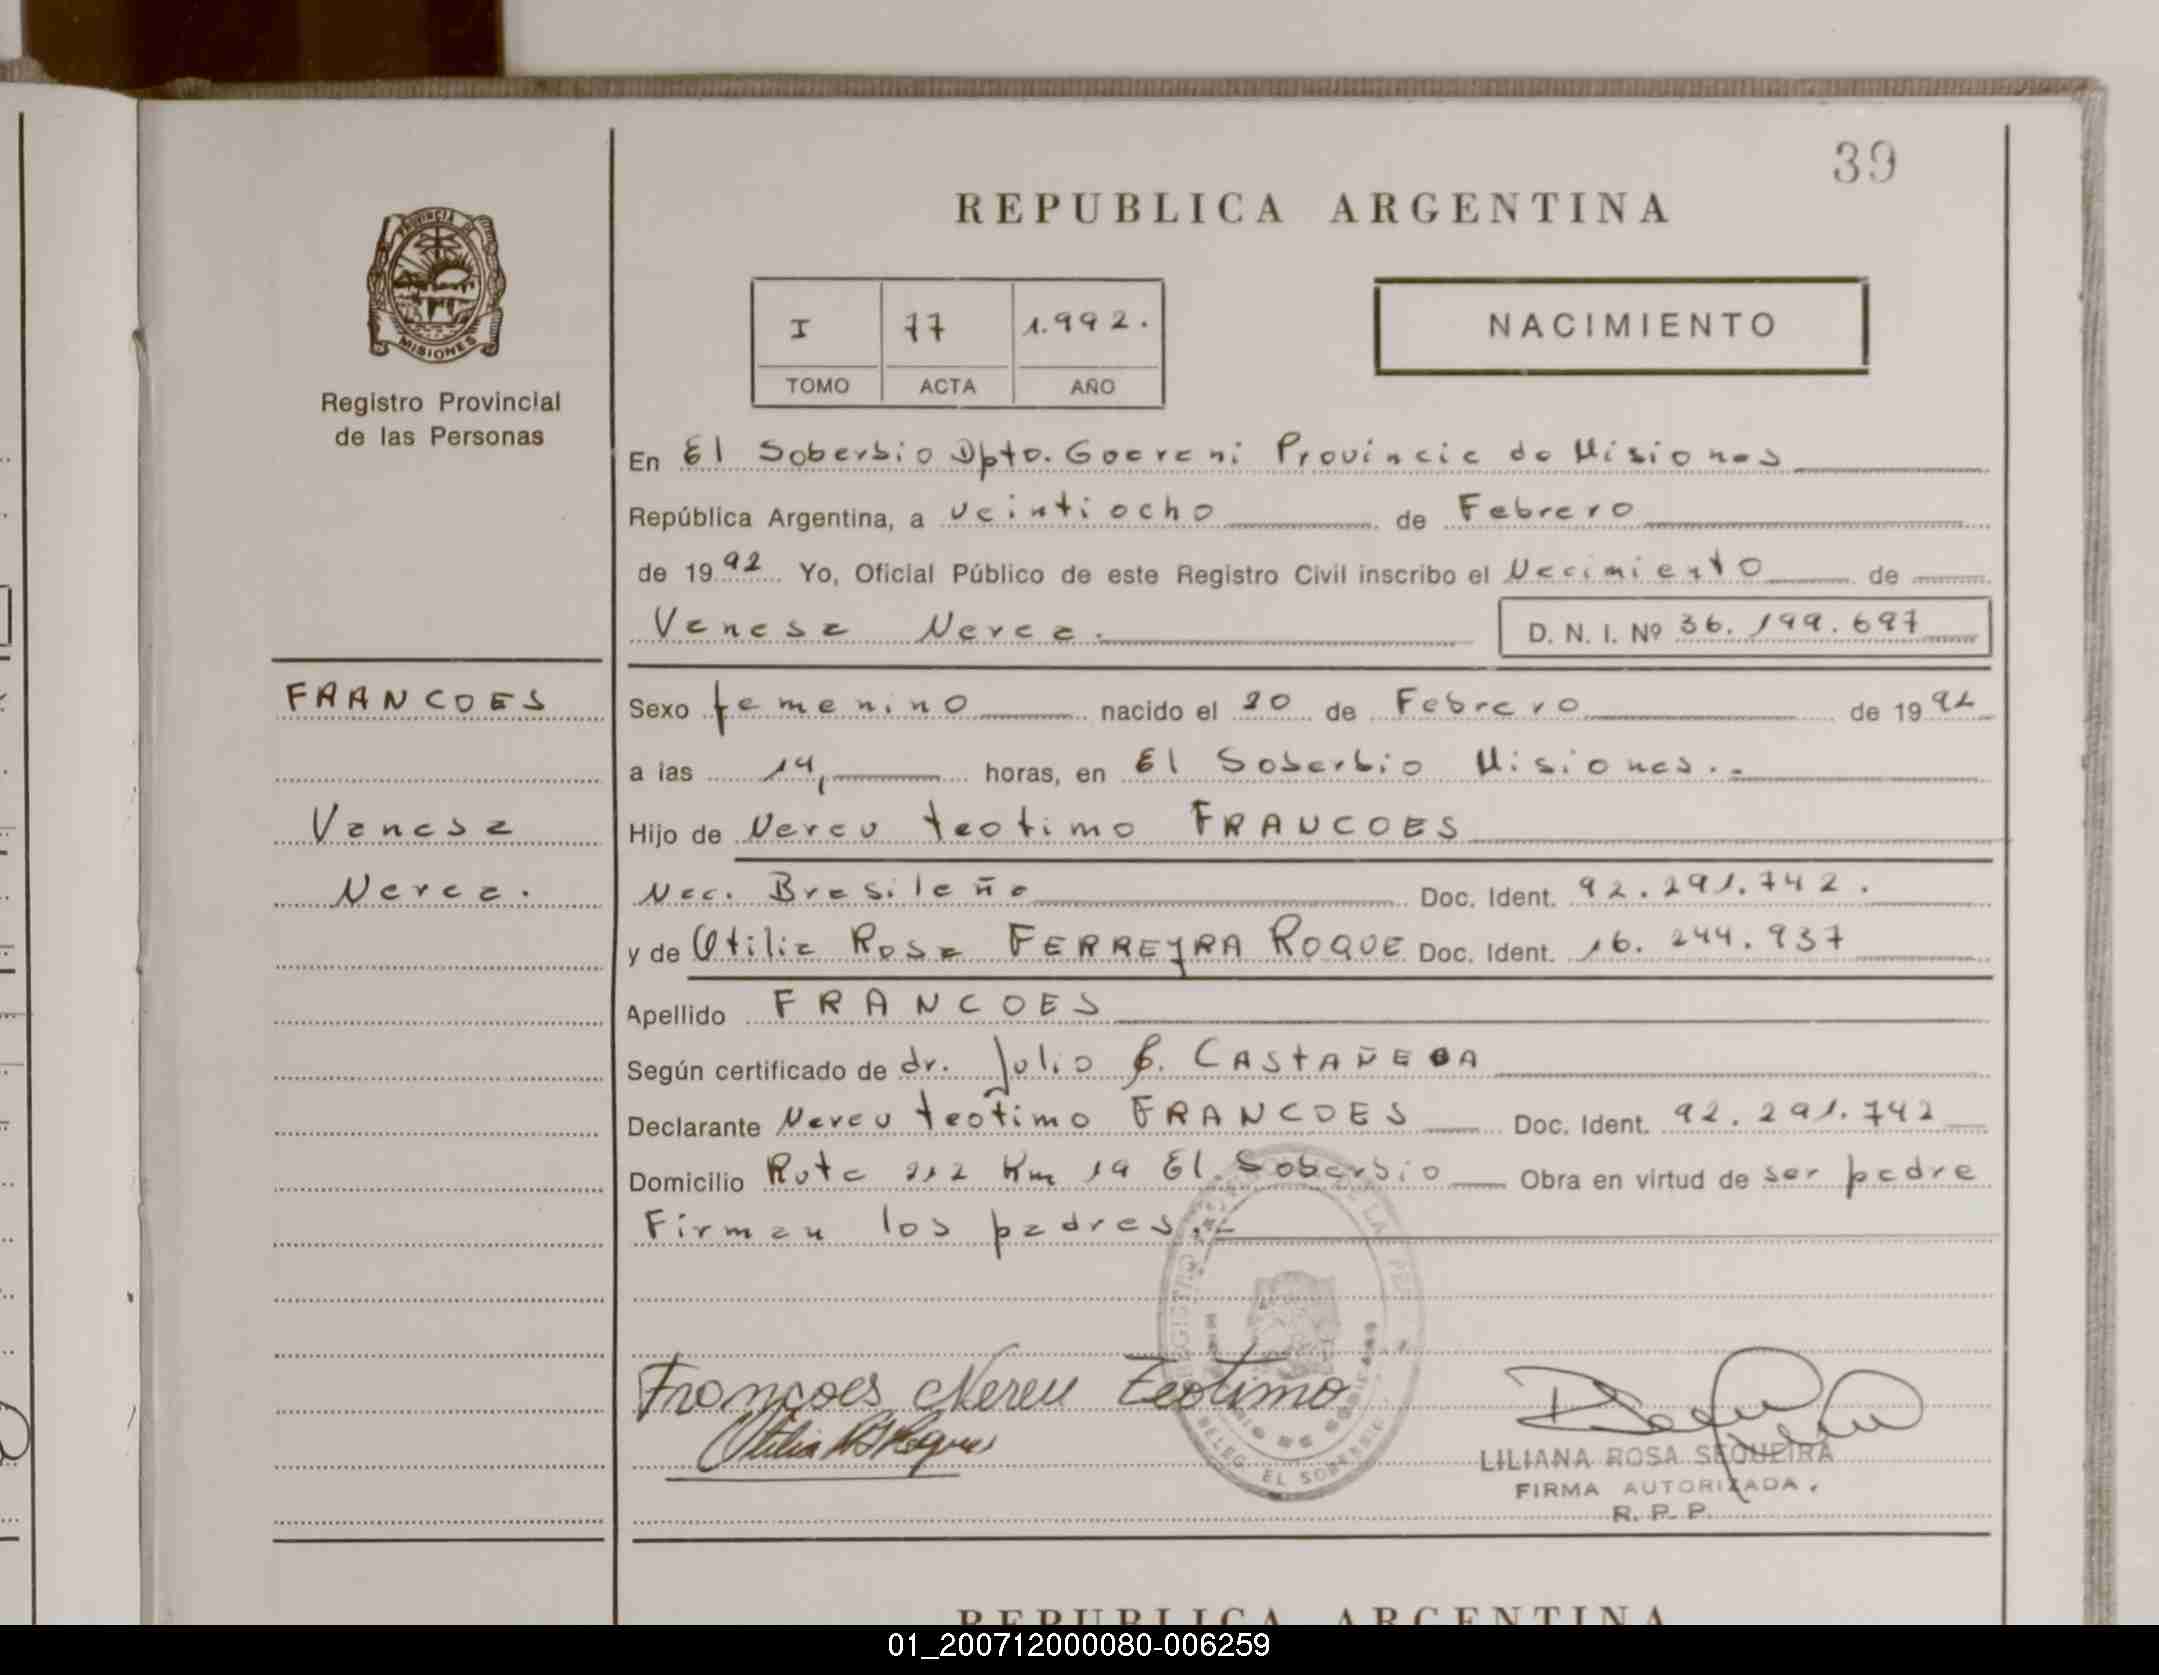 39
REPUBLICA ARGENTINA
PROVINCIA DE
MISIONES
Registro Provincial
de las Personas
I 77 1.992.
TOMO ACTA AÑO
NACIMIENTO
En El Soberbio Dpto. Guarani Provincia de Misiones
República Argentina, a veintiocho de Febrero
de 1992 Yo, Oficial Público de este Registro Civil inscribo el Nacimiento de
Vanesa Nerea. D. N. I. Nº 36.199.697
FRANCOES
Sexo femenino nacido el 20 de Febrero de 1992
a las 14, horas, en El Soberbio Misiones.-
Vanesa
Hijo de Nereu teotimo FRANCOES
Nerea.
Nac. Brasileña Doc. Ident. 92.291.742.
y de Otilia Rosa FERREYRA ROQUE Doc. Ident. 16.244.937
Apellido FRANCOES
Según certificado de dr. Julio C. CASTAÑEDA
Declarante Nereu teotimo FRANCOES Doc. Ident. 92.291.742
Domicilio Ruta 212 Km 19 El Soberbio Obra en virtud de ser padre
Firman los padres.-
Françoes Nereu Teotimo
Otilia R F Roque
LILIANA ROSA SEQUEIRA
FIRMA AUTORIZADA
R. P. P.
REGISTRO DE LAS PE
DELEG. EL SOBERBIO
REPUBLICA ARGENTINA
01_200712000080-006259